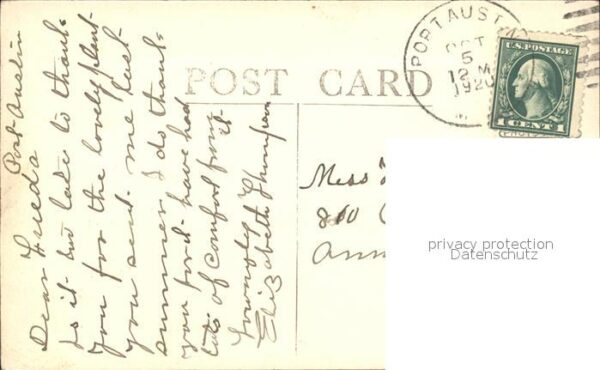 POST CARD
PORT AUST
OCT
5
12 M
1920
U.S. POSTAGE
1 CENT 1
Port Austin
Dear Frieda
Is it too late to thank
you for the lovely plant
you sent me last
summer. I do thank
you for it - have had
lots of comfort from it.
Lovingly
Elizabeth Thompson
Miss
810
Ann
privacy protection
Datenschutz